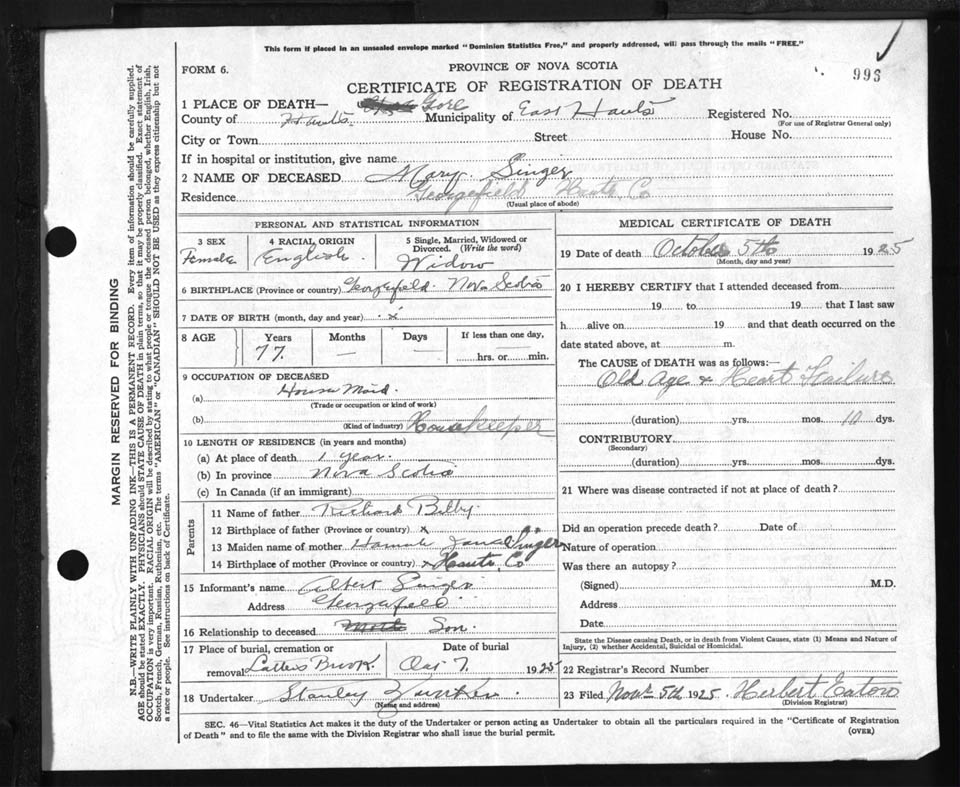 This form if placed in an unsealed envelope marked "Dominion Statistics Free," and properly addressed, will pass through the mails "FREE."
FORM 6.
PROVINCE OF NOVA SCOTIA
993
CERTIFICATE OF REGISTRATION OF DEATH
1 PLACE OF DEATH— Gore
County of Hants Municipality of East Hants Registered No.
(For use of Registrar General only)
City or Town Street House No.
If in hospital or institution, give name
2 NAME OF DECEASED Mary Singer
Residence Georgefield Hants Co
(Usual place of abode)
PERSONAL AND STATISTICAL INFORMATION
3 SEX Female
4 RACIAL ORIGIN English
5 Single, Married, Widowed or Divorced. (Write the word) Widow
6 BIRTHPLACE (Province or country) Georgefield Nova Scotia
7 DATE OF BIRTH (month, day and year) x
8 AGE Years Months Days If less than one day,
77 — — hrs. or min.
9 OCCUPATION OF DECEASED
(a) House Maid
(Trade or occupation or kind of work)
(b) House Keeper
(Kind of industry)
10 LENGTH OF RESIDENCE (in years and months)
(a) At place of death 1 year
(b) In province Nova Scotia
(c) In Canada (if an immigrant)
Parents
11 Name of father Richard
12 Birthplace of father (Province or country) x
13 Maiden name of mother Singer
14 Birthplace of mother (Province or country) x Hants Co
15 Informant's name Albert Singer
Address Georgefield
16 Relationship to deceased Son
17 Place of burial, cremation or removal Date of burial
Brook 7 1925
18 Undertaker Stanley
(Name and address)
MEDICAL CERTIFICATE OF DEATH
19 Date of death October 5th 1925
(Month, day and year)
20 I HEREBY CERTIFY that I attended deceased from
19 to 19 that I last saw
h alive on 19 and that death occurred on the
date stated above, at m.
The CAUSE OF DEATH was as follows:
Old Age & Heart Failure
(duration) yrs. mos. 10 dys.
CONTRIBUTORY
(Secondary)
(duration) yrs. mos. dys.
21 Where was disease contracted if not at place of death?
Did an operation precede death? Date of
Nature of operation
Was there an autopsy?
(Signed) M.D.
Address
Date
State the Disease causing Death, or in death from Violent Causes, state (1) Means and Nature of
Injury, (2) whether Accidental, Suicidal or Homicidal.
22 Registrar's Record Number
23 Filed Nov 5th 1925 Herbert Eaton
(Division Registrar)
SEC. 46—Vital Statistics Act makes it the duty of the Undertaker or person acting as Undertaker to obtain all the particulars required in the "Certificate of Registration
of Death" and to file the same with the Division Registrar who shall issue the burial permit.
(OVER)
MARGIN RESERVED FOR BINDING
N.B.—WRITE PLAINLY WITH UNFADING INK—THIS IS A PERMANENT RECORD. Every item of information should be carefully supplied.
AGE should be stated EXACTLY. PHYSICIANS should STATE CAUSE OF DEATH in plain terms, so that it may be properly classified. Exact statement of
OCCUPATION is very important. RACIAL ORIGIN will be described by stating to what people or tongue the deceased person belonged, whether English, Irish,
Scotch, French, German, Russian, Ruthenian, etc. The terms "AMERICAN" or "CANADIAN" SHOULD NOT BE USED as they express citizenship but not
a race or people. See instructions on back of Certificate.